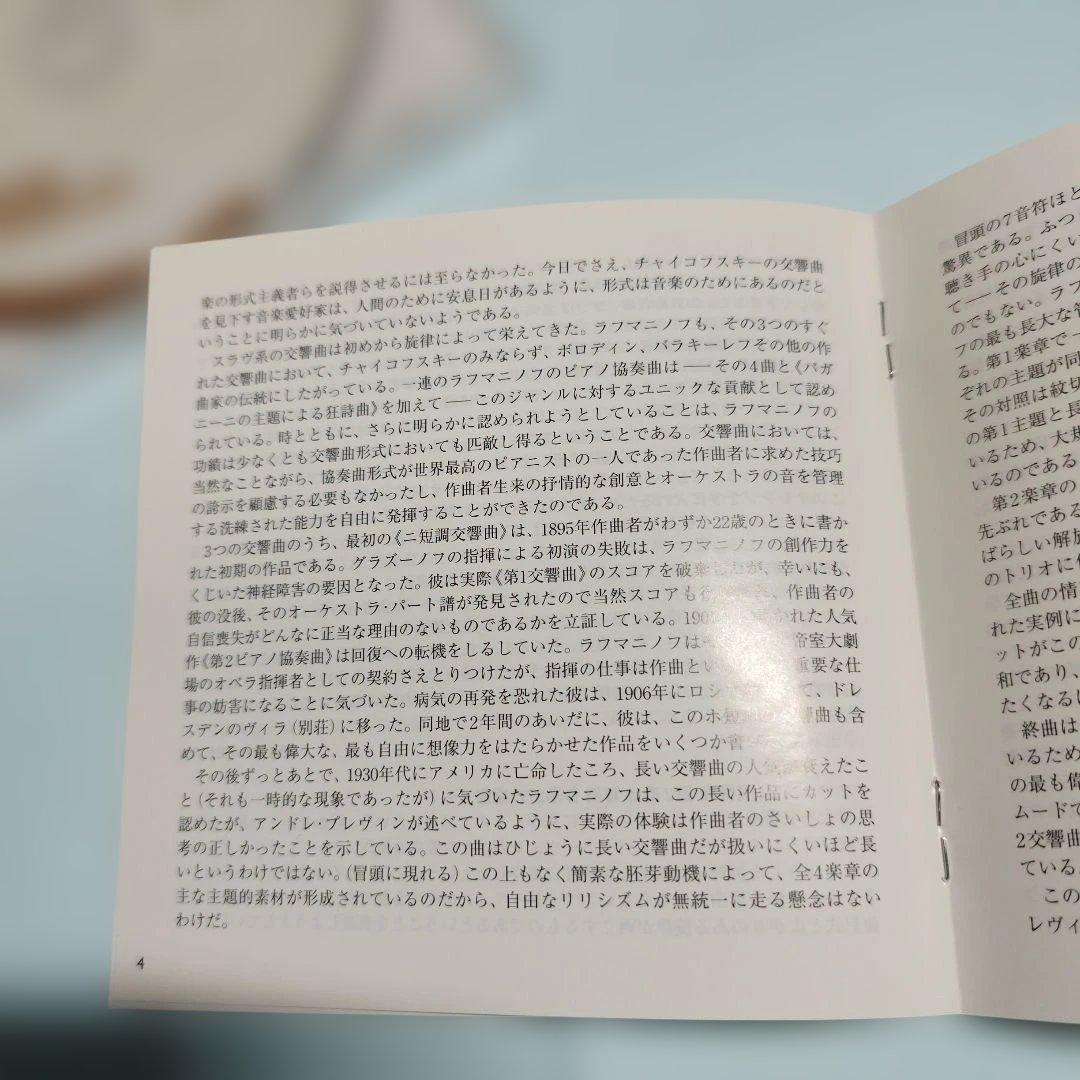 楽の形式主義者らを説得させるには至らなかった。今日でさえ、チャイコフスキーの交響曲
を見下す音楽愛好家は、人間のために安息日があるように、形式は音楽のためにあるのだと
いうことに明らかに気づいていないようである。
スラヴ系の交響曲は初めから旋律によって栄えてきた。ラフマニノフも、その3つのすぐ
れた交響曲において、チャイコフスキーのみならず、ボロディン、バラキーレフその他の作
曲家の伝統にしたがっている。一連のラフマニノフのピアノ協奏曲は——その4曲と《パガ
ニーニの主題による狂詩曲》を加えて——このジャンルに対するユニックな貢献として認め
られている。時とともに、さらに明らかに認められようとしていることは、ラフマニノフの
功績は少なくとも交響曲形式においても匹敵し得るということである。交響曲においては、
当然なことながら、協奏曲形式が世界最高のピアニストの一人であった作曲者に求めた技巧
の誇示を顧慮する必要もなかったし、作曲者生来の抒情的な創意とオーケストラの音を管理
する洗練された能力を自由に発揮することができたのである。
3つの交響曲のうち、最初の《ニ短調交響曲》は、1895年作曲者がわずか22歳のときに書か
れた初期の作品である。グラズーノフの指揮による初演の失敗は、ラフマニノフの創作力を
くじいた神経障害の要因となった。彼は実際《第1交響曲》のスコアを破棄したが、幸いにも、
彼の没後、そのオーケストラ・パート譜が発見されたので当然スコアも 作曲者の
自信喪失がどんなに正当な理由のないものであるかを立証している。 かれた人気
作《第2ピアノ協奏曲》は回復への転機をしるしていた。ラフマニノフは 帝室大劇
場のオペラ指揮者としての契約さえとりつけたが、指揮の仕事は作曲とい 重要な仕
事の妨害になることに気づいた。病気の再発を恐れた彼は、1906年にロシ て、ドレ
スデンのヴィラ(別荘)に移った。同地で2年間のあいだに、彼は、このホ短 響曲も含
めて、その最も偉大な、最も自由に想像力をはたらかせた作品をいくつか
その後ずっとあとで、1930年代にアメリカに亡命したころ、長い交響曲の人気が衰えたこ
と(それも一時的な現象であったが)に気づいたラフマニノフは、この長い作品にカットを
認めたが、アンドレ・プレヴィンが述べているように、実際の体験は作曲者のさいしょの思
考の正しかったことを示している。この曲はひじょうに長い交響曲だが扱いにくいほど長
いというわけではない。(冒頭に現れる)この上もなく簡素な胚芽動機によって、全4楽章の
主な主題的素材が形成されているのだから、自由なリリシズムが無統一に走る懸念はない
わけだ。
4
冒頭の7音符ほど
驚異である。ふつ
聴き手の心にくい
て——その旋律の
のでもない。ラフ
フの最も長大な
る。第1楽章で一
ぞれの主題が同
その対照は紋切
の第1主題と長
いるため、大規
いるのである
第2楽章の
先ぶれである
ばらしい解放
のトリオに
全曲の情
れた実例に
ットがこの
和であり、
たくなるに
終曲は
いるため
の最も偉
ムードで
2交響曲
ている。
この
レヴィ